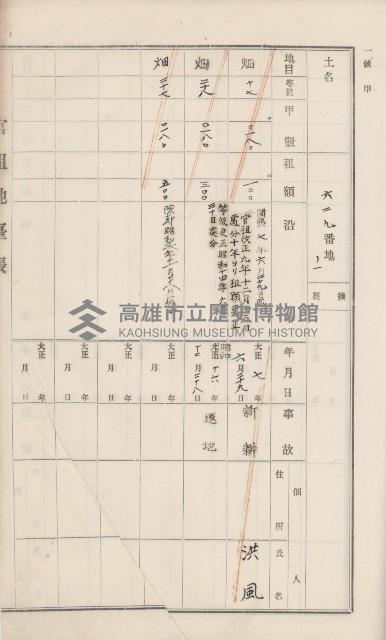 一號甲
土名 六二九番地ノ一 摘要
地目 等級 甲數 租額 沿革 年月日 事故 佃人 住所 氏名
畑 十七 〇一八〇 一〇〇
官租改正九年十二月
處分十年ヨリ租額更正
大正 七年 六月二十九日 新耕 洪風
畑 二十八 〇一八〇 三〇〇
等級更正昭和十四年
三十日處分
昭和 大正 十六年 十二月二十八日 退地
畑 二十七 〇一八〇 五〇〇
大正 年 月 日
大正 年 月 日
大正 年 月 日
大正 年 月 日
官租地臺帳
高雄市立歷史博物館
KAOHSIUNG MUSEUM OF HISTORY